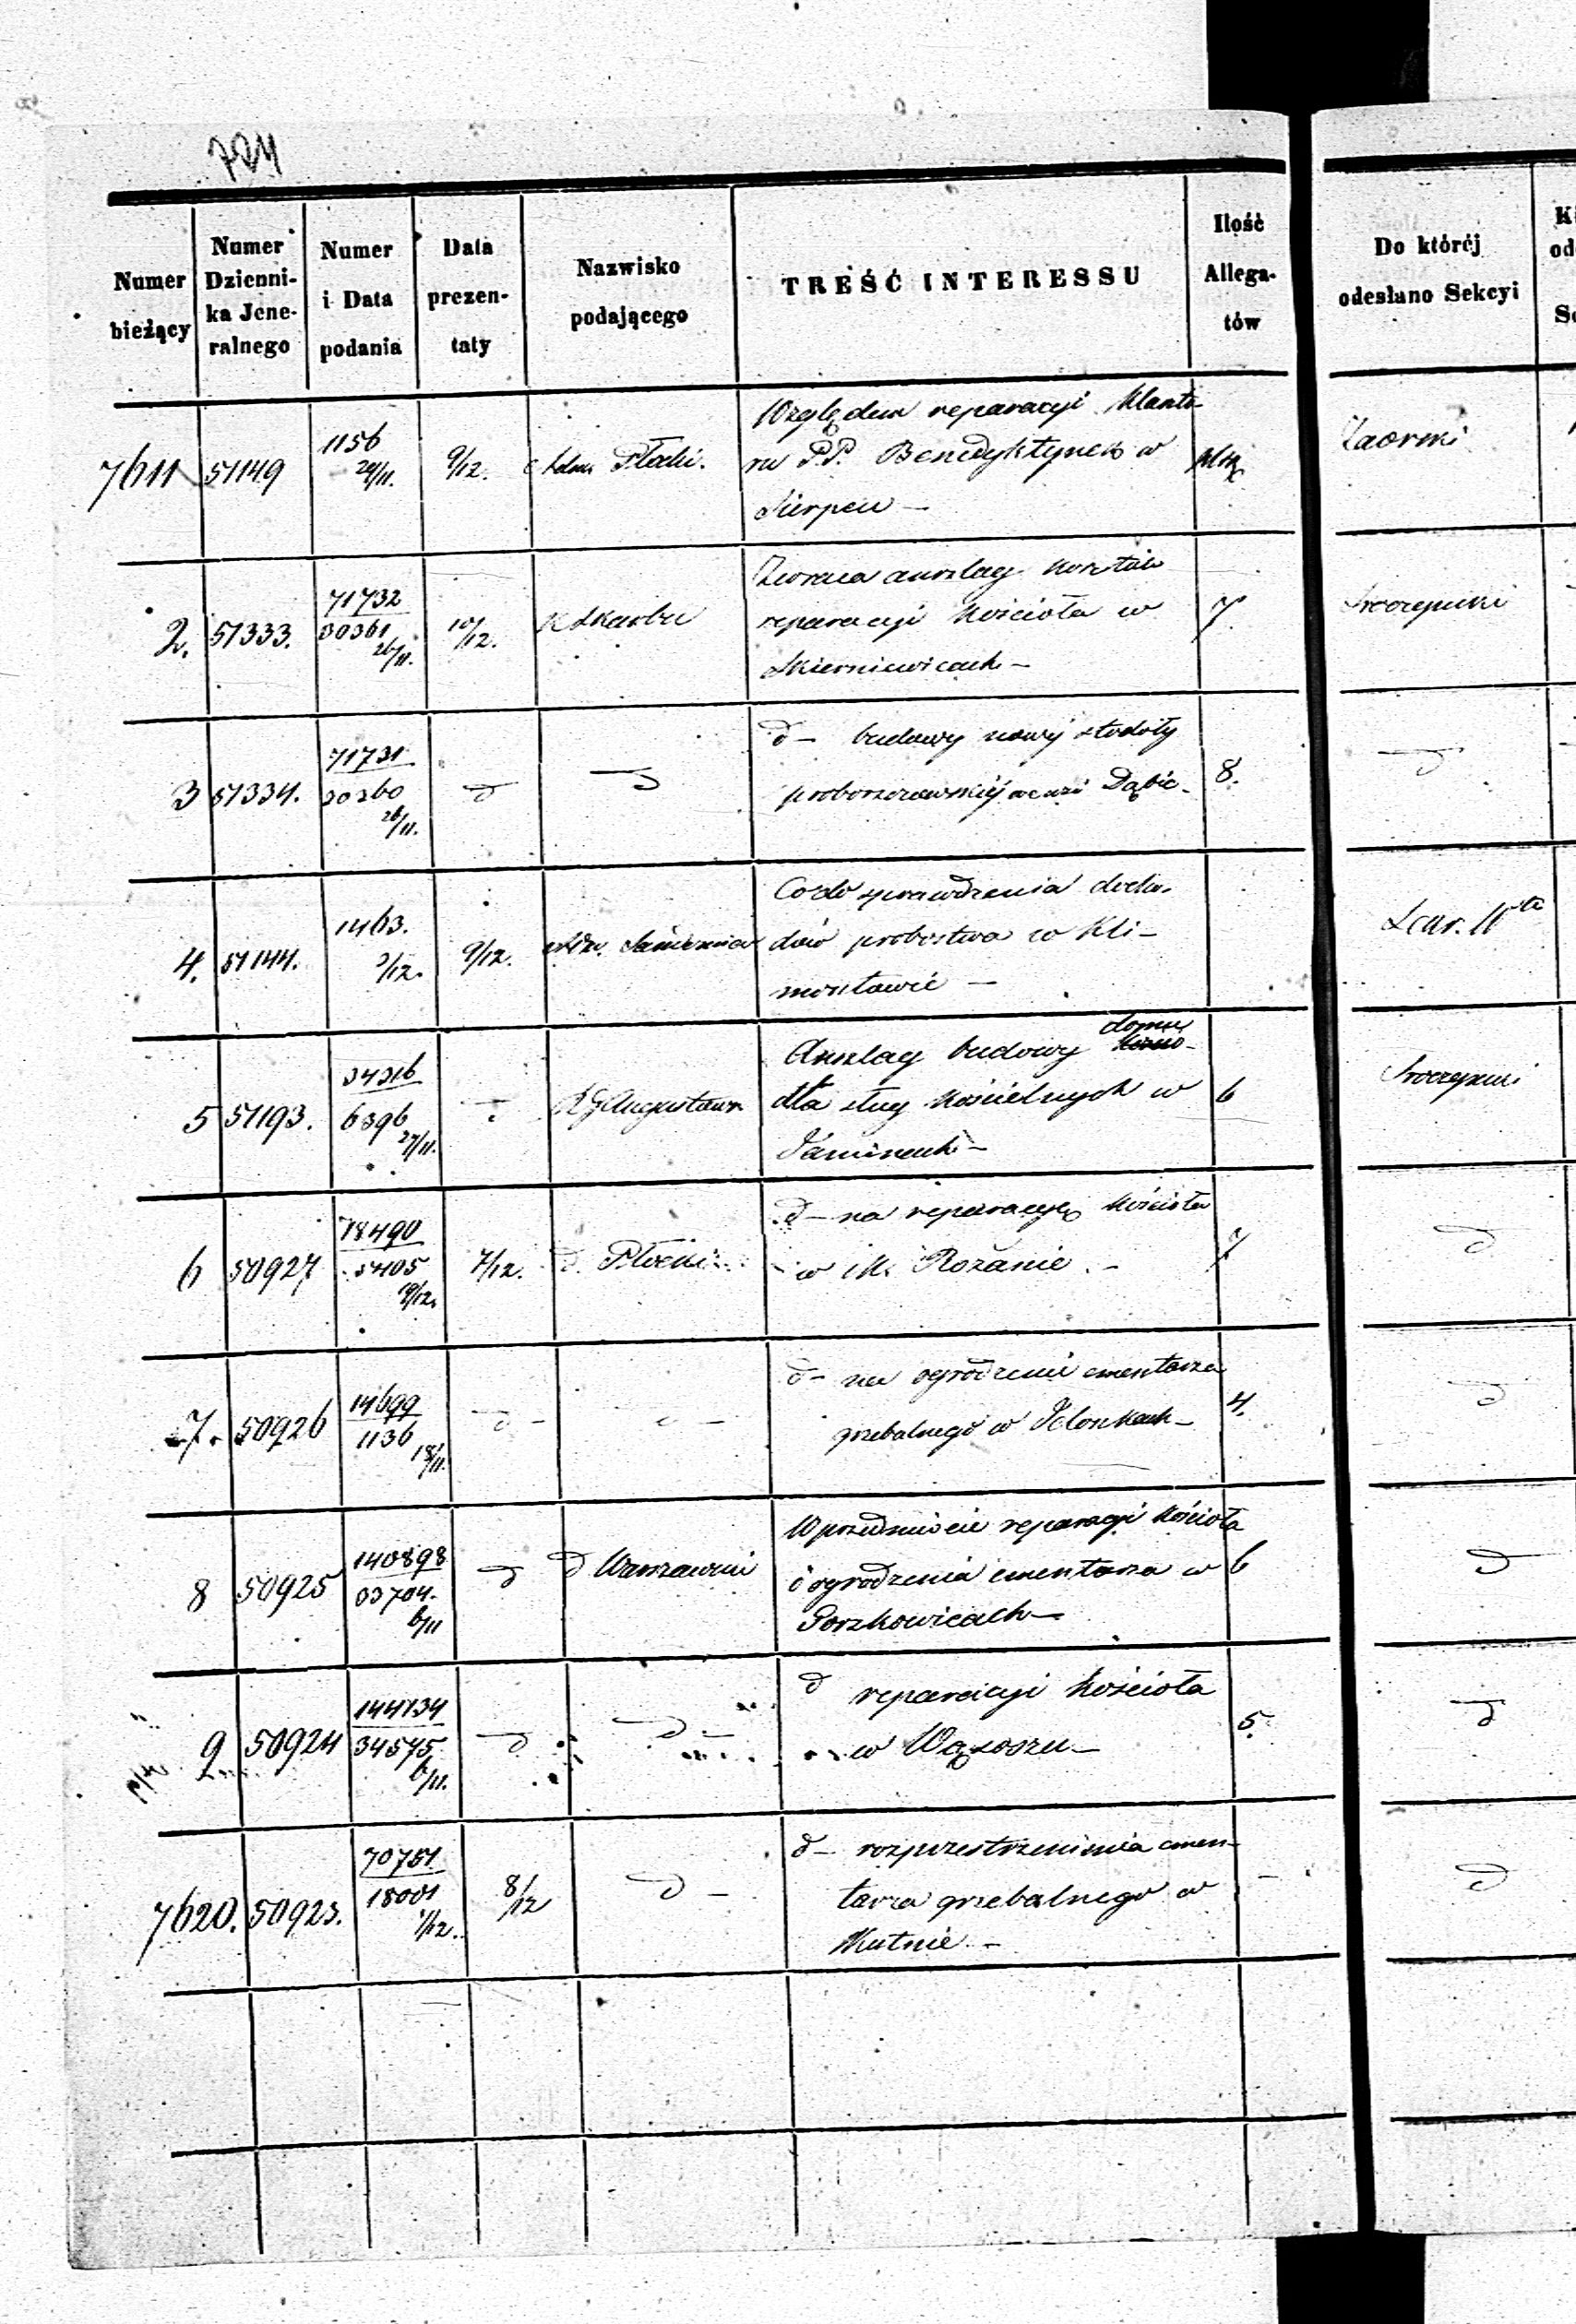 724
Numer bieżący | Numer Dzienni- ka Jene- ralnego | Numer i Data podania | Data prezen- taty | Nazwisko podającego | TREŚĆ INTERESSU | Ilość Allega- tów | Do któréj odesłano Sekcyi
7611 | 51149 | 1156 29/11. | 9/12. | Adm. Płocki. | Względem reparacyi Klaszto-
ru P.P. Benedyktynek w
Sierpcu —
2. | 51333. | 71732 30361 26/11. | 10/12. | K Skarbu | Zwraca anszlag kosztów | 7.
reparacyi Kościoła w
Skierniewicach —
3 | 51334. | 71731 30360 26/11. | d | d | d — budowy nowej stodoły | 8. | d
proboszczowskiej we wsi Dąbie —
4. | 51144. | 1463. 3/12. | 9/12. | Co do sprawdzenia docho-
dów probostwa w Kli-
montowie —
5 | 51193. | 34316 6396 27/11. | d | RG Augustows | Anszlag budowy domu | 6
dla sług Kościelnych w
Jamincach —
6 | 50927 | 18490 5405 | 7/12. | d. Płocki | d — na reparacyę Kościoła | 7 | d
w M. Rożanie. —
7. | 50926 | 14699 1136 18/11. | d — | d — | d — na ogrodzenie cmentarza | 4. | d
grzebalnego w Jelonkach —
8 | 50925 | 140898 33704. 6/11 | d | d Warszawski | W przedmiocie reparacyi Kościoła | 6 | d
i ogrodzenia cmentarza w
Gorzkowicach —
9 | 50924 | 144734 34575 6/11. | d | d — | d reparacyi Kościoła | 5. | d
w Wąsoszu —
7620. | 50923. | 70751 18001 1/12. | 8/12 | d — | d — rozprzestrzenienia cmen- | — | d
tarza grzebalnego w
Kutnie. —